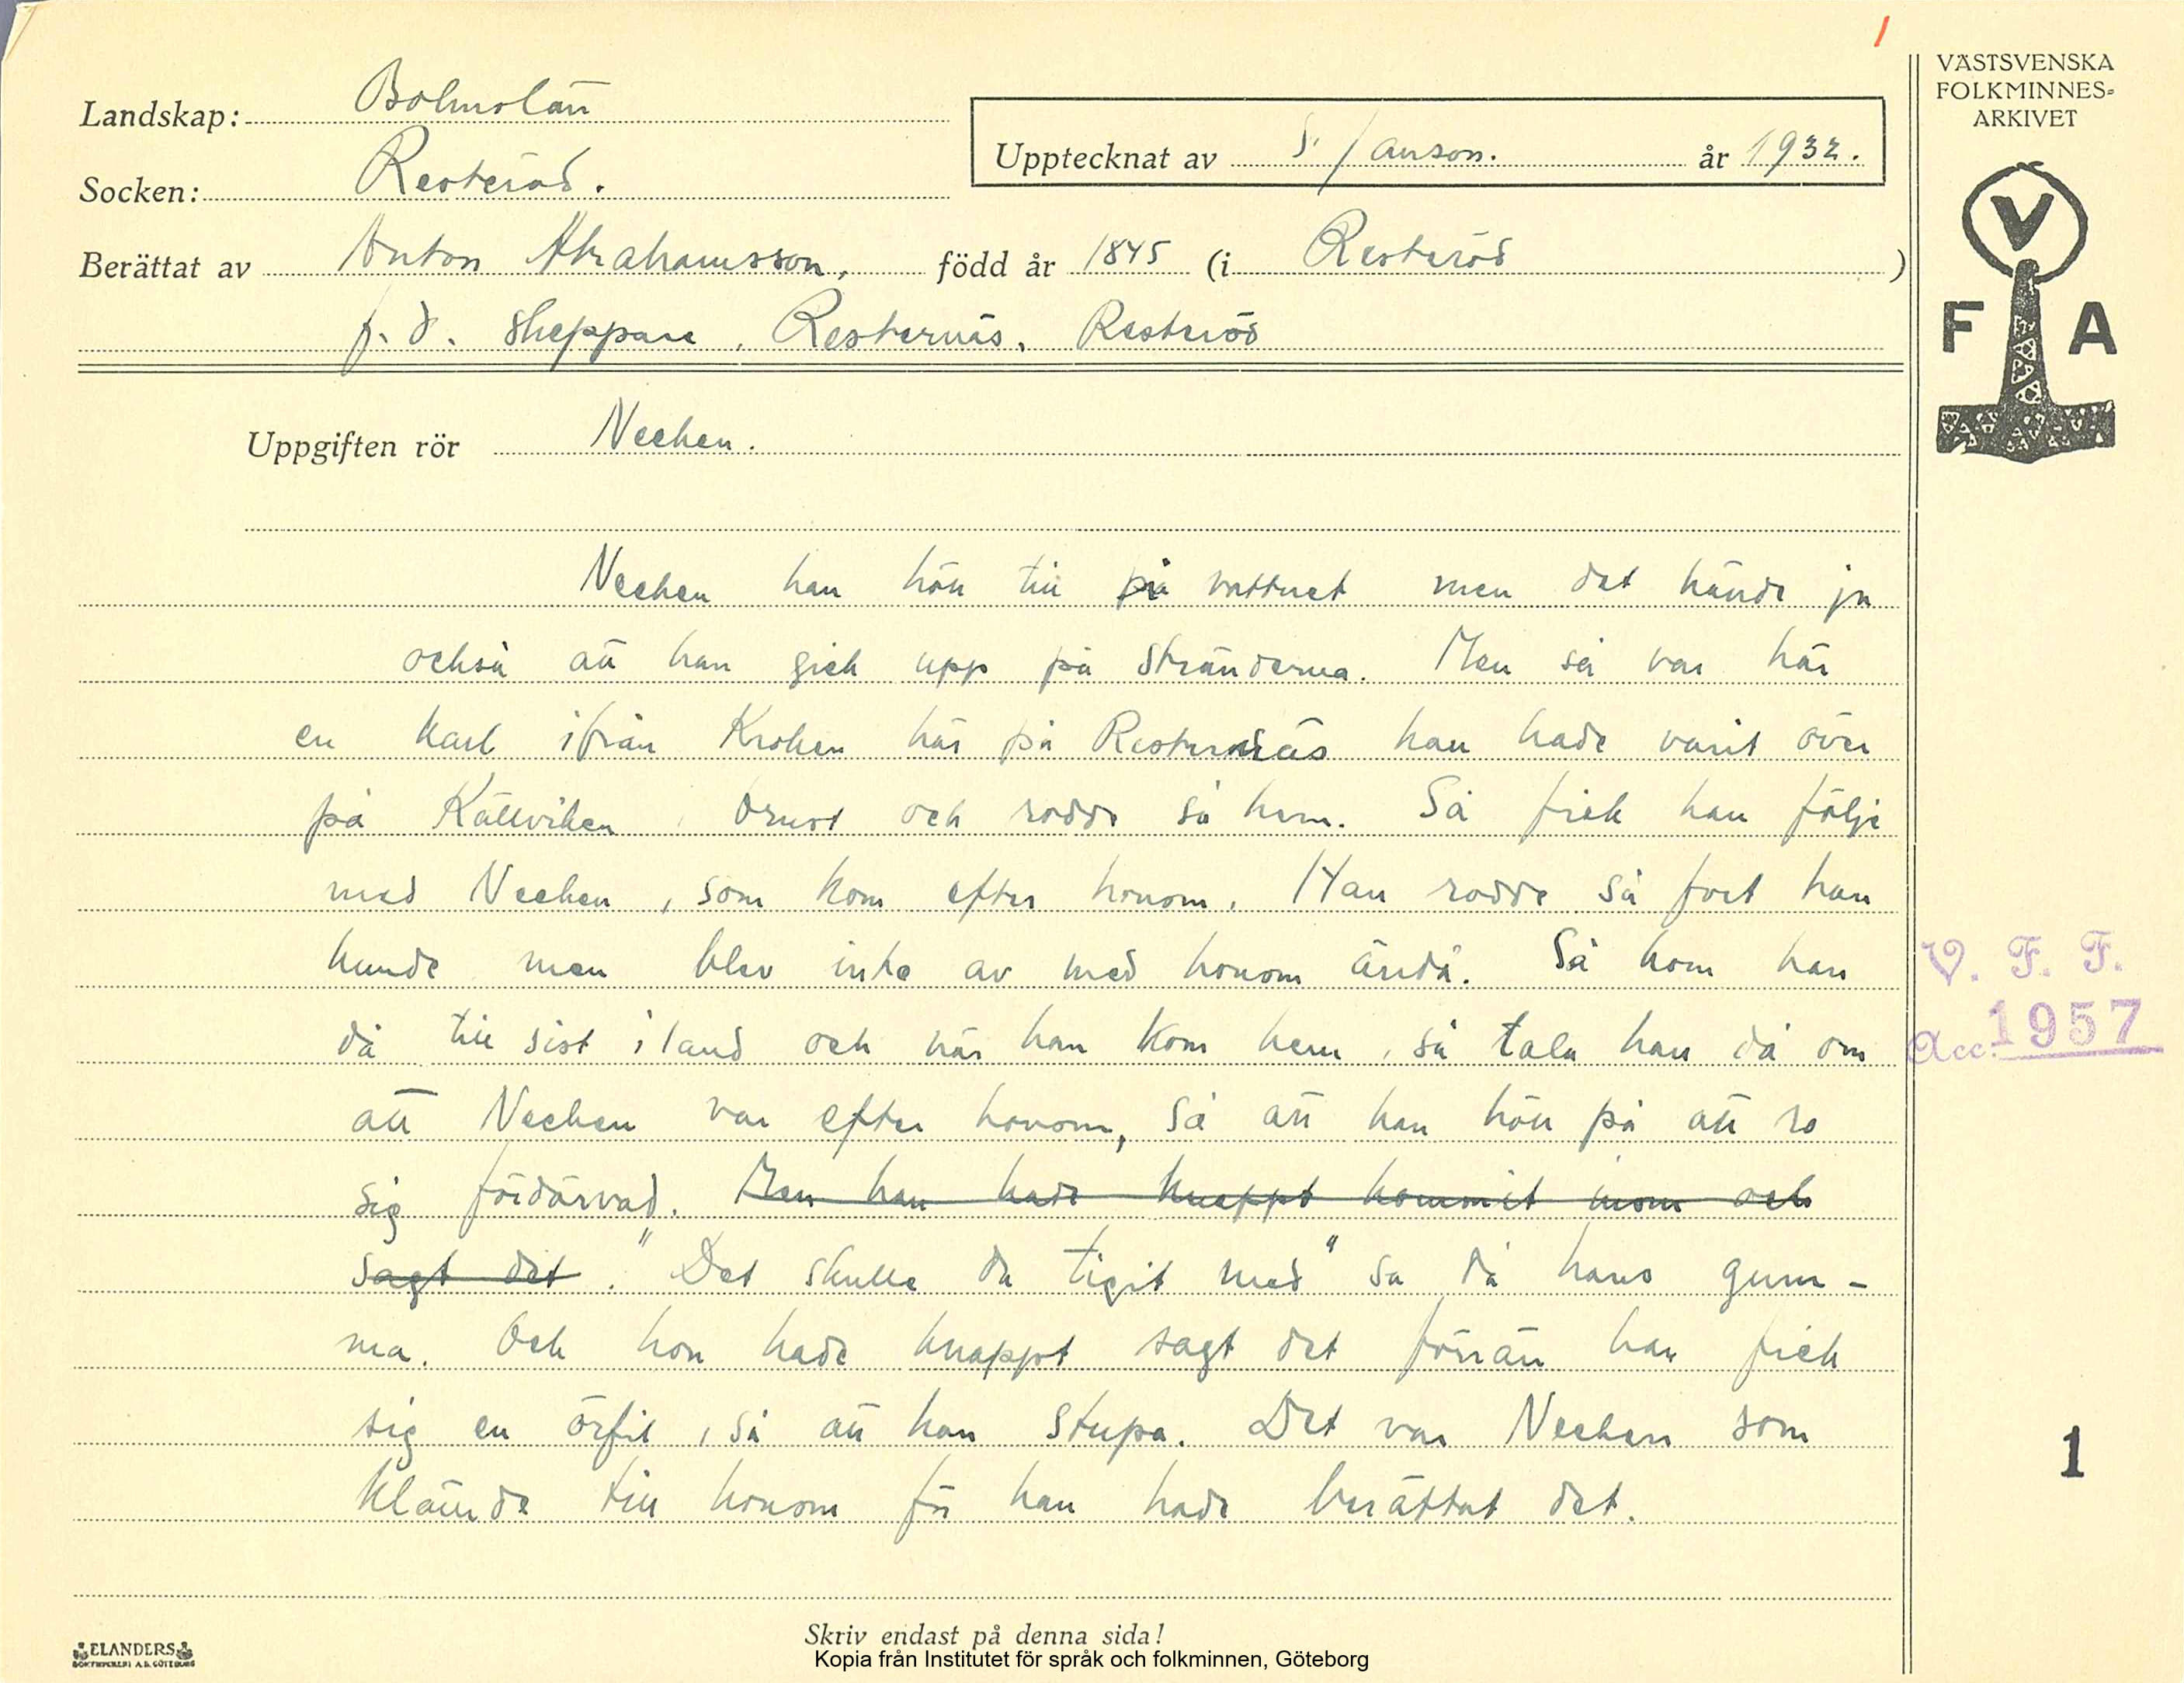 1
VÄSTSVENSKA
FOLKMINNES-
ARKIVET
Landskap: Bohuslän
Upptecknat av S. Janson. år 1932.
Socken: Resteröd.
Berättat av Anton Abrahamsson, född år 1845 (i Resteröd)
f. d. skeppare, Resternäs, Resteröd
V
F A
Uppgiften rör Necken.
Necken han höll till på vattnet men det hände ju
också att han gick upp på stränderna. Men så var här
en karl ifrån Kroken här på Resternäs han hade varit över
på Källviken, Orust och rodde så hem. Så fick han följe
med Necken, som kom efter honom. Han rodde så fort han
kunde men blev inte av med honom ändå. Så kom han
då till sist i land och när han kom hem, så tala han då om
att Necken var efter honom, så att han höll på att ro
sig fördärvad. Men han hade knappt kommit inom och
sagt det. "Det skulle du tigit med" sa då hans gum-
ma. Och hon hade knappt sagt det förrän han fick
sig en örfil, så att han stupa. Det var Necken som
klämde till honom för han hade berättat det.
V. F. F.
Acc. 1957
1
ELANDERS
BOKTRYCKERI A.B. GÖTEBORG
Skriv endast på denna sida!
Kopia från Institutet för språk och folkminnen, Göteborg